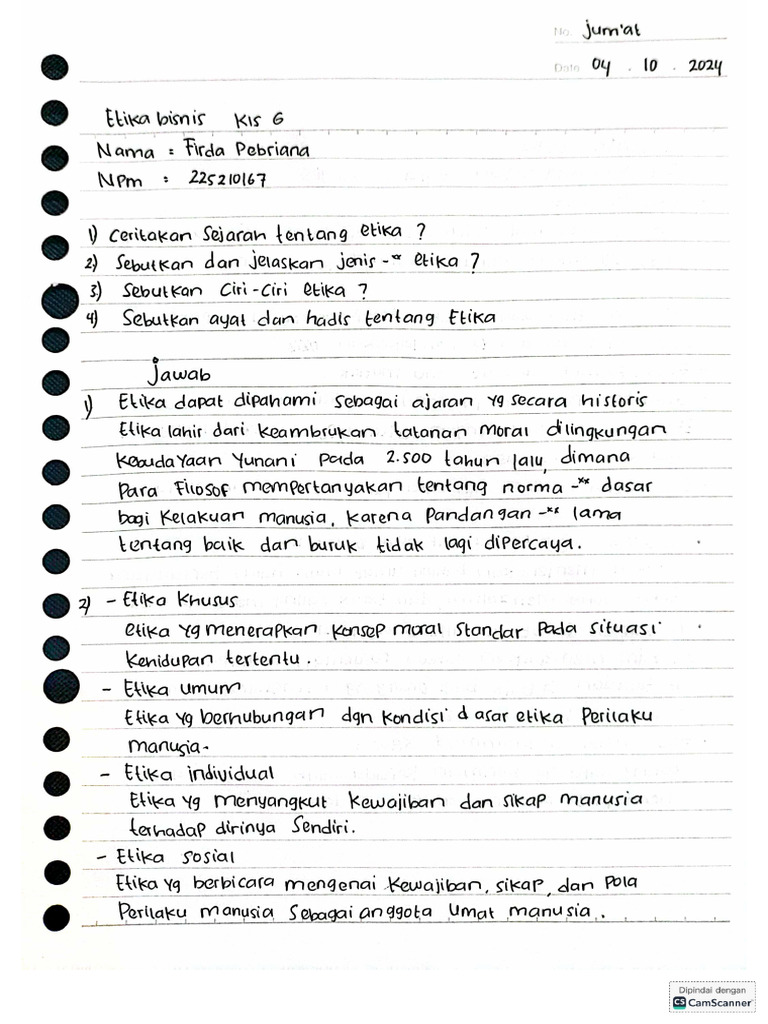 No. Jum'at
Date 04 . 10 . 2024
Etika bisnis Kls 6
Nama : Firda Pebriana
NPM : 225210167
1) Ceritakan Sejarah tentang etika ?
2) Sebutkan dan jelaskan jenis-" etika ?
3) Sebutkan Ciri-Ciri etika ?
4) Sebutkan ayat dan hadis tentang Etika
Jawab
1) Etika dapat dipahami sebagai ajaran yg secara historis
Etika lahir dari keambrukan tatanan moral dilingkungan
kebudayaan Yunani pada 2.500 tahun lalu, dimana
para Filosof mempertanyakan tentang norma-" dasar
bagi kelakuan manusia, karena Pandangan-" lama
tentang baik dan buruk tidak lagi dipercaya.
2) - Etika Khusus
etika yg menerapkan konsep moral standar pada situasi
kehidupan tertentu.
- Etika umum
Etika yg berhubungan dgn kondisi dasar etika Perilaku
manusia.
- Etika individual
Etika yg menyangkut kewajiban dan sikap manusia
terhadap dirinya Sendiri.
- Etika sosial
Etika yg berbicara mengenai kewajiban, sikap, dan Pola
Perilaku manusia Sebagai anggota umat manusia.
Dipindai dengan
CS CamScanner